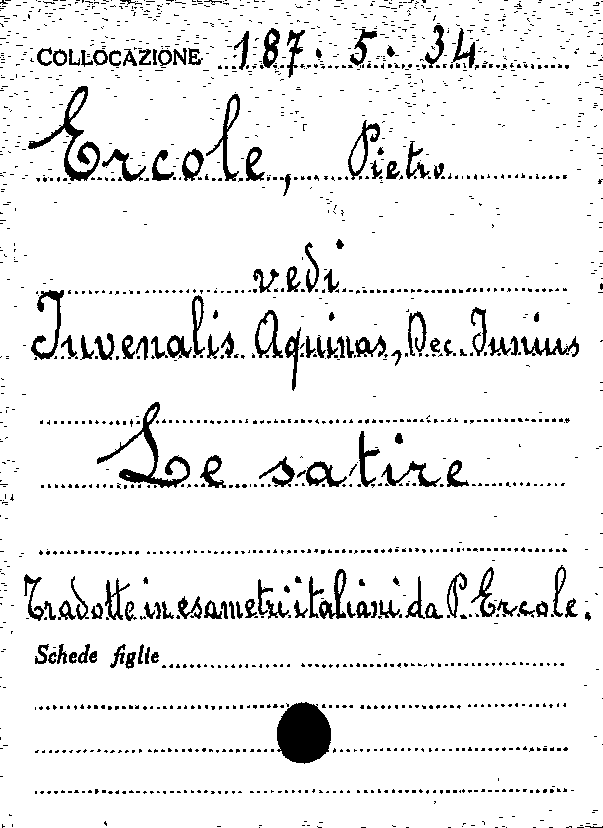 COLLOCAZIONE 187. 5. 34
Ercole, Pietro
vedi
Juvenalis Aquinas, Dec. Junius
Le satire
Tradotte in esametri italiani da P. Ercole.
Schede figlie